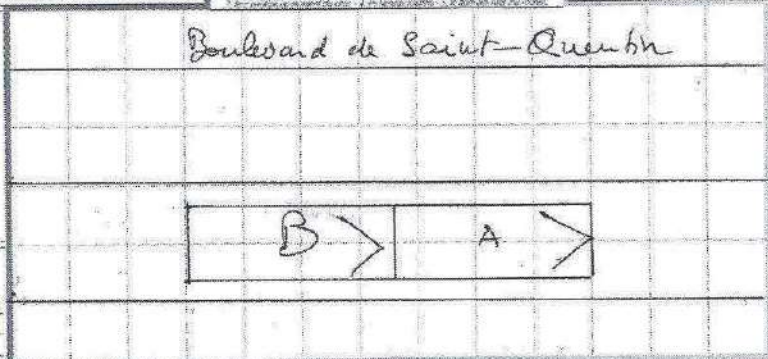 Boulevard de Saint-Quentin
B A